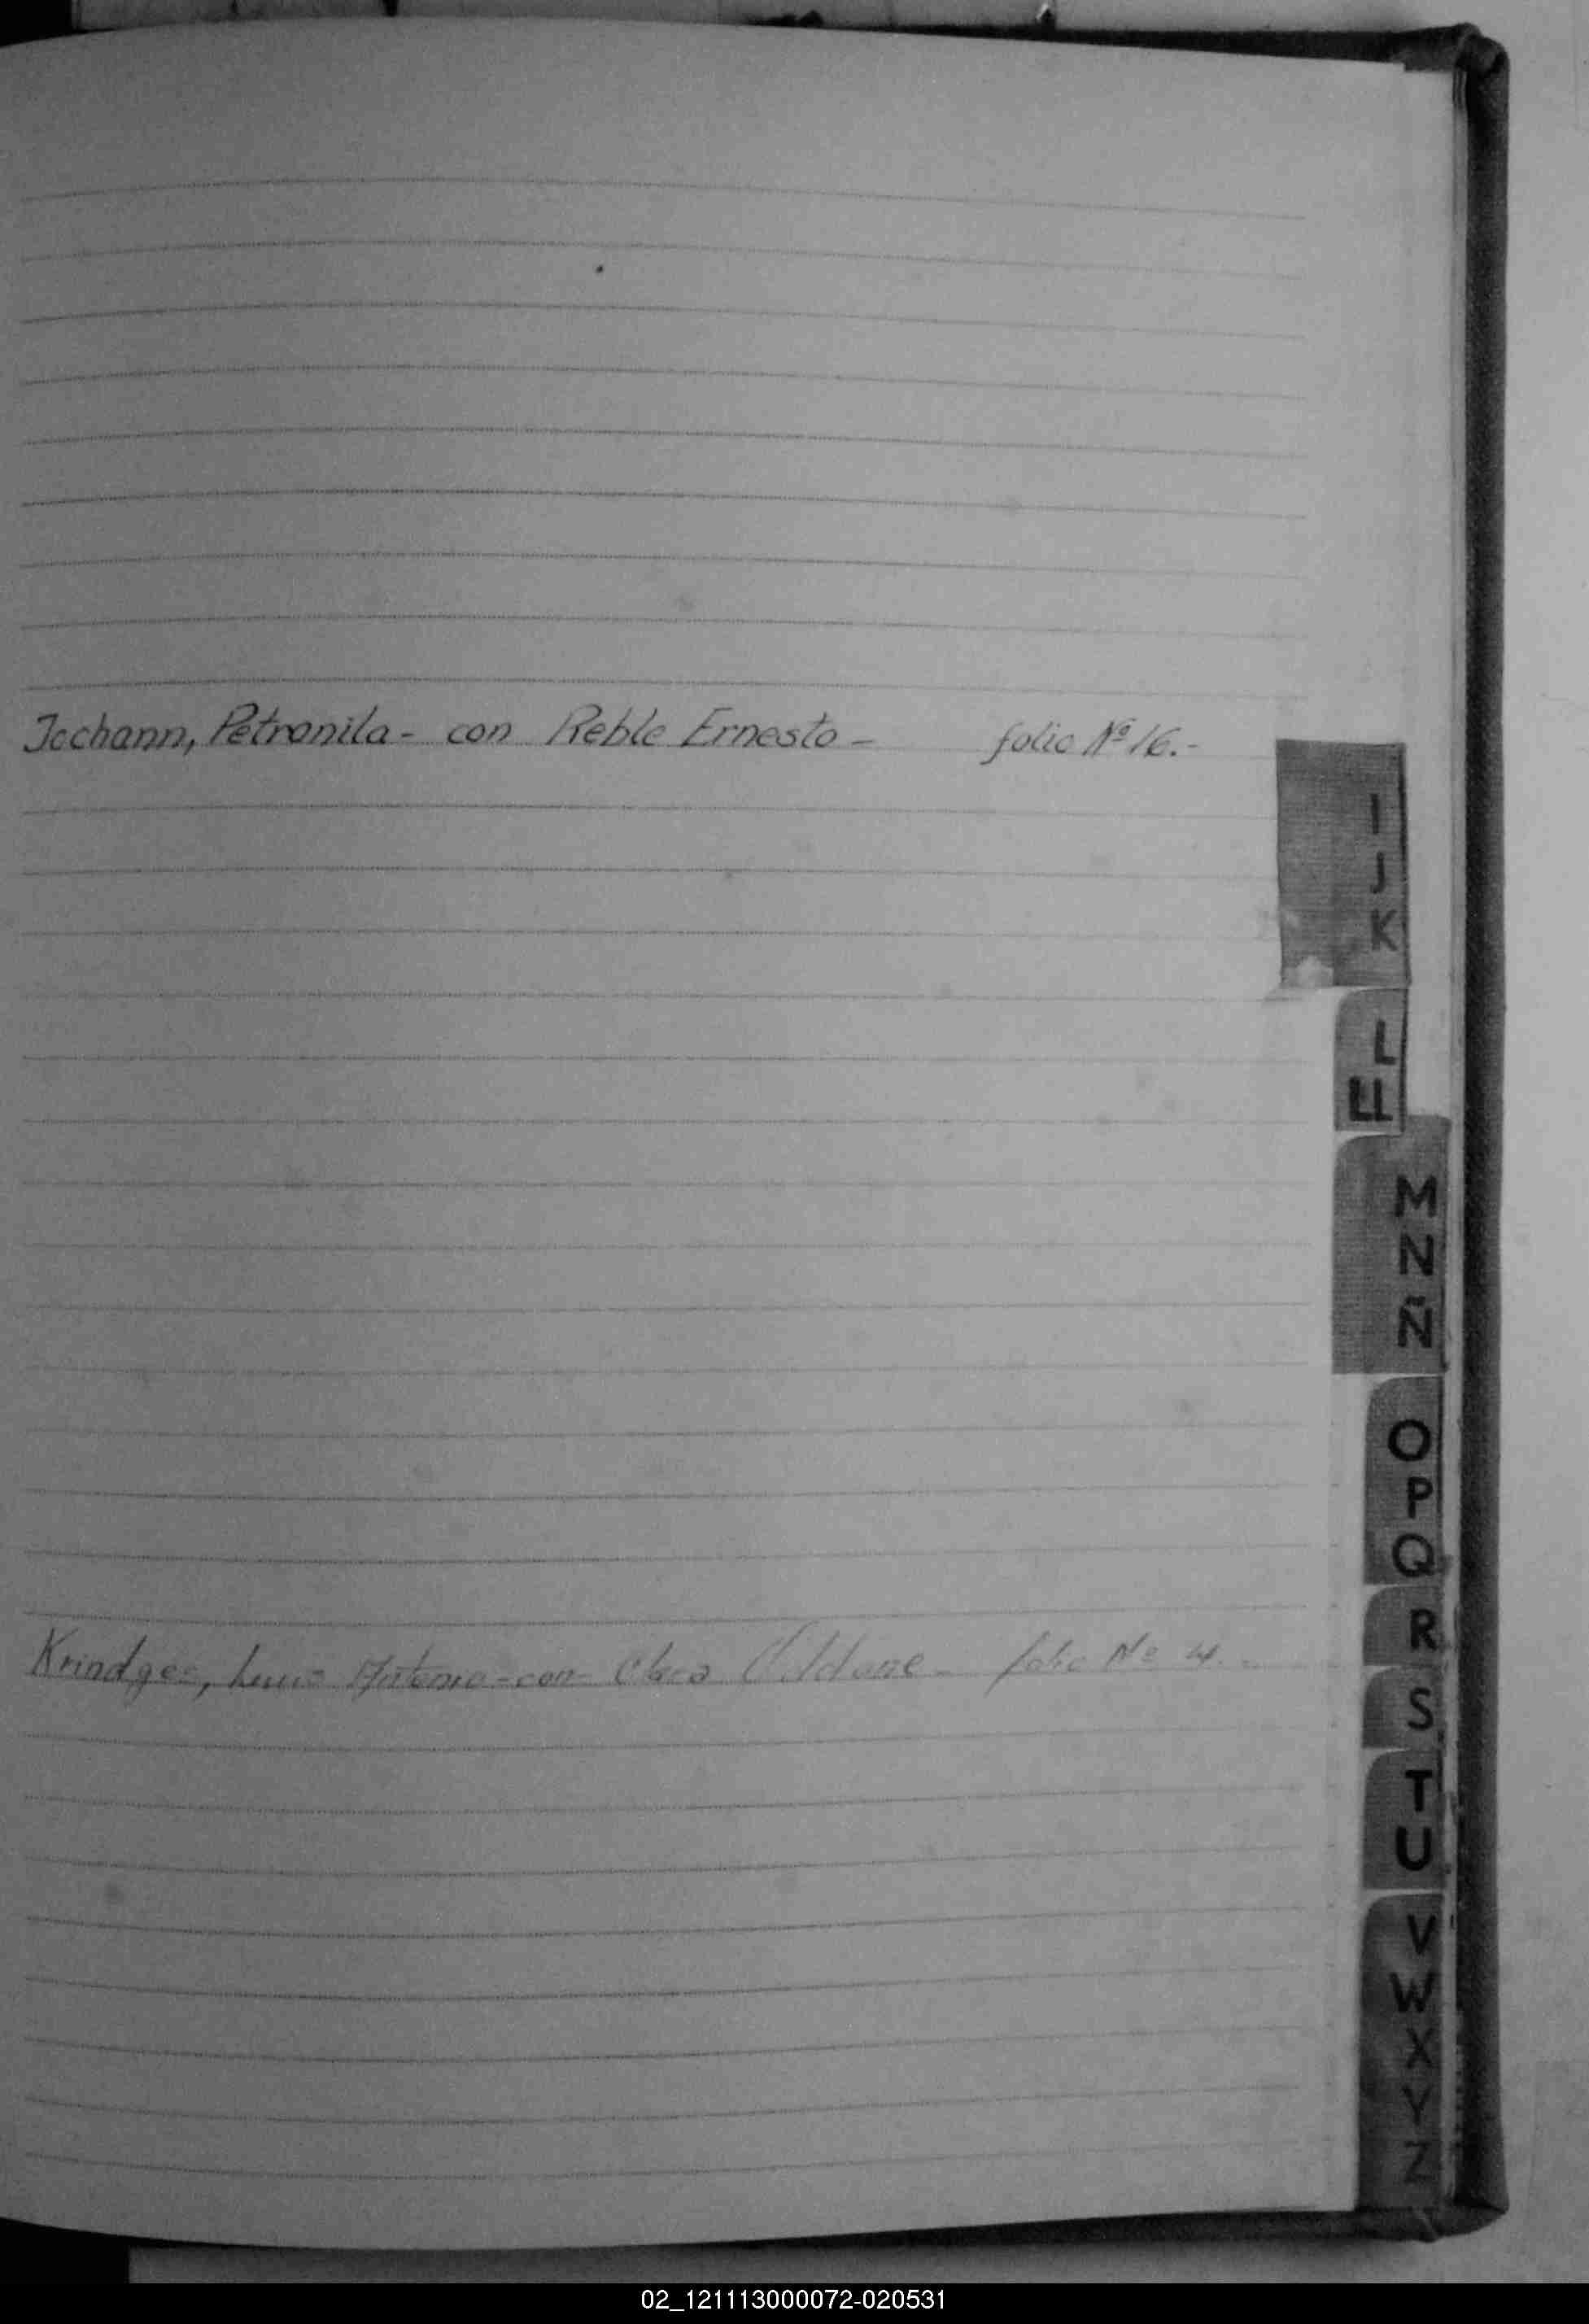 Jochann, Petronila - con Reble Ernesto - folio Nº 16.-
I
J
K
L
LL
M
N
Ñ
O
P
Q
R
S
T
U
V
W
X
Y
Z
Krindges, Luis Antonio - con Clara folio Nº 4. -
02_121113000072-020531